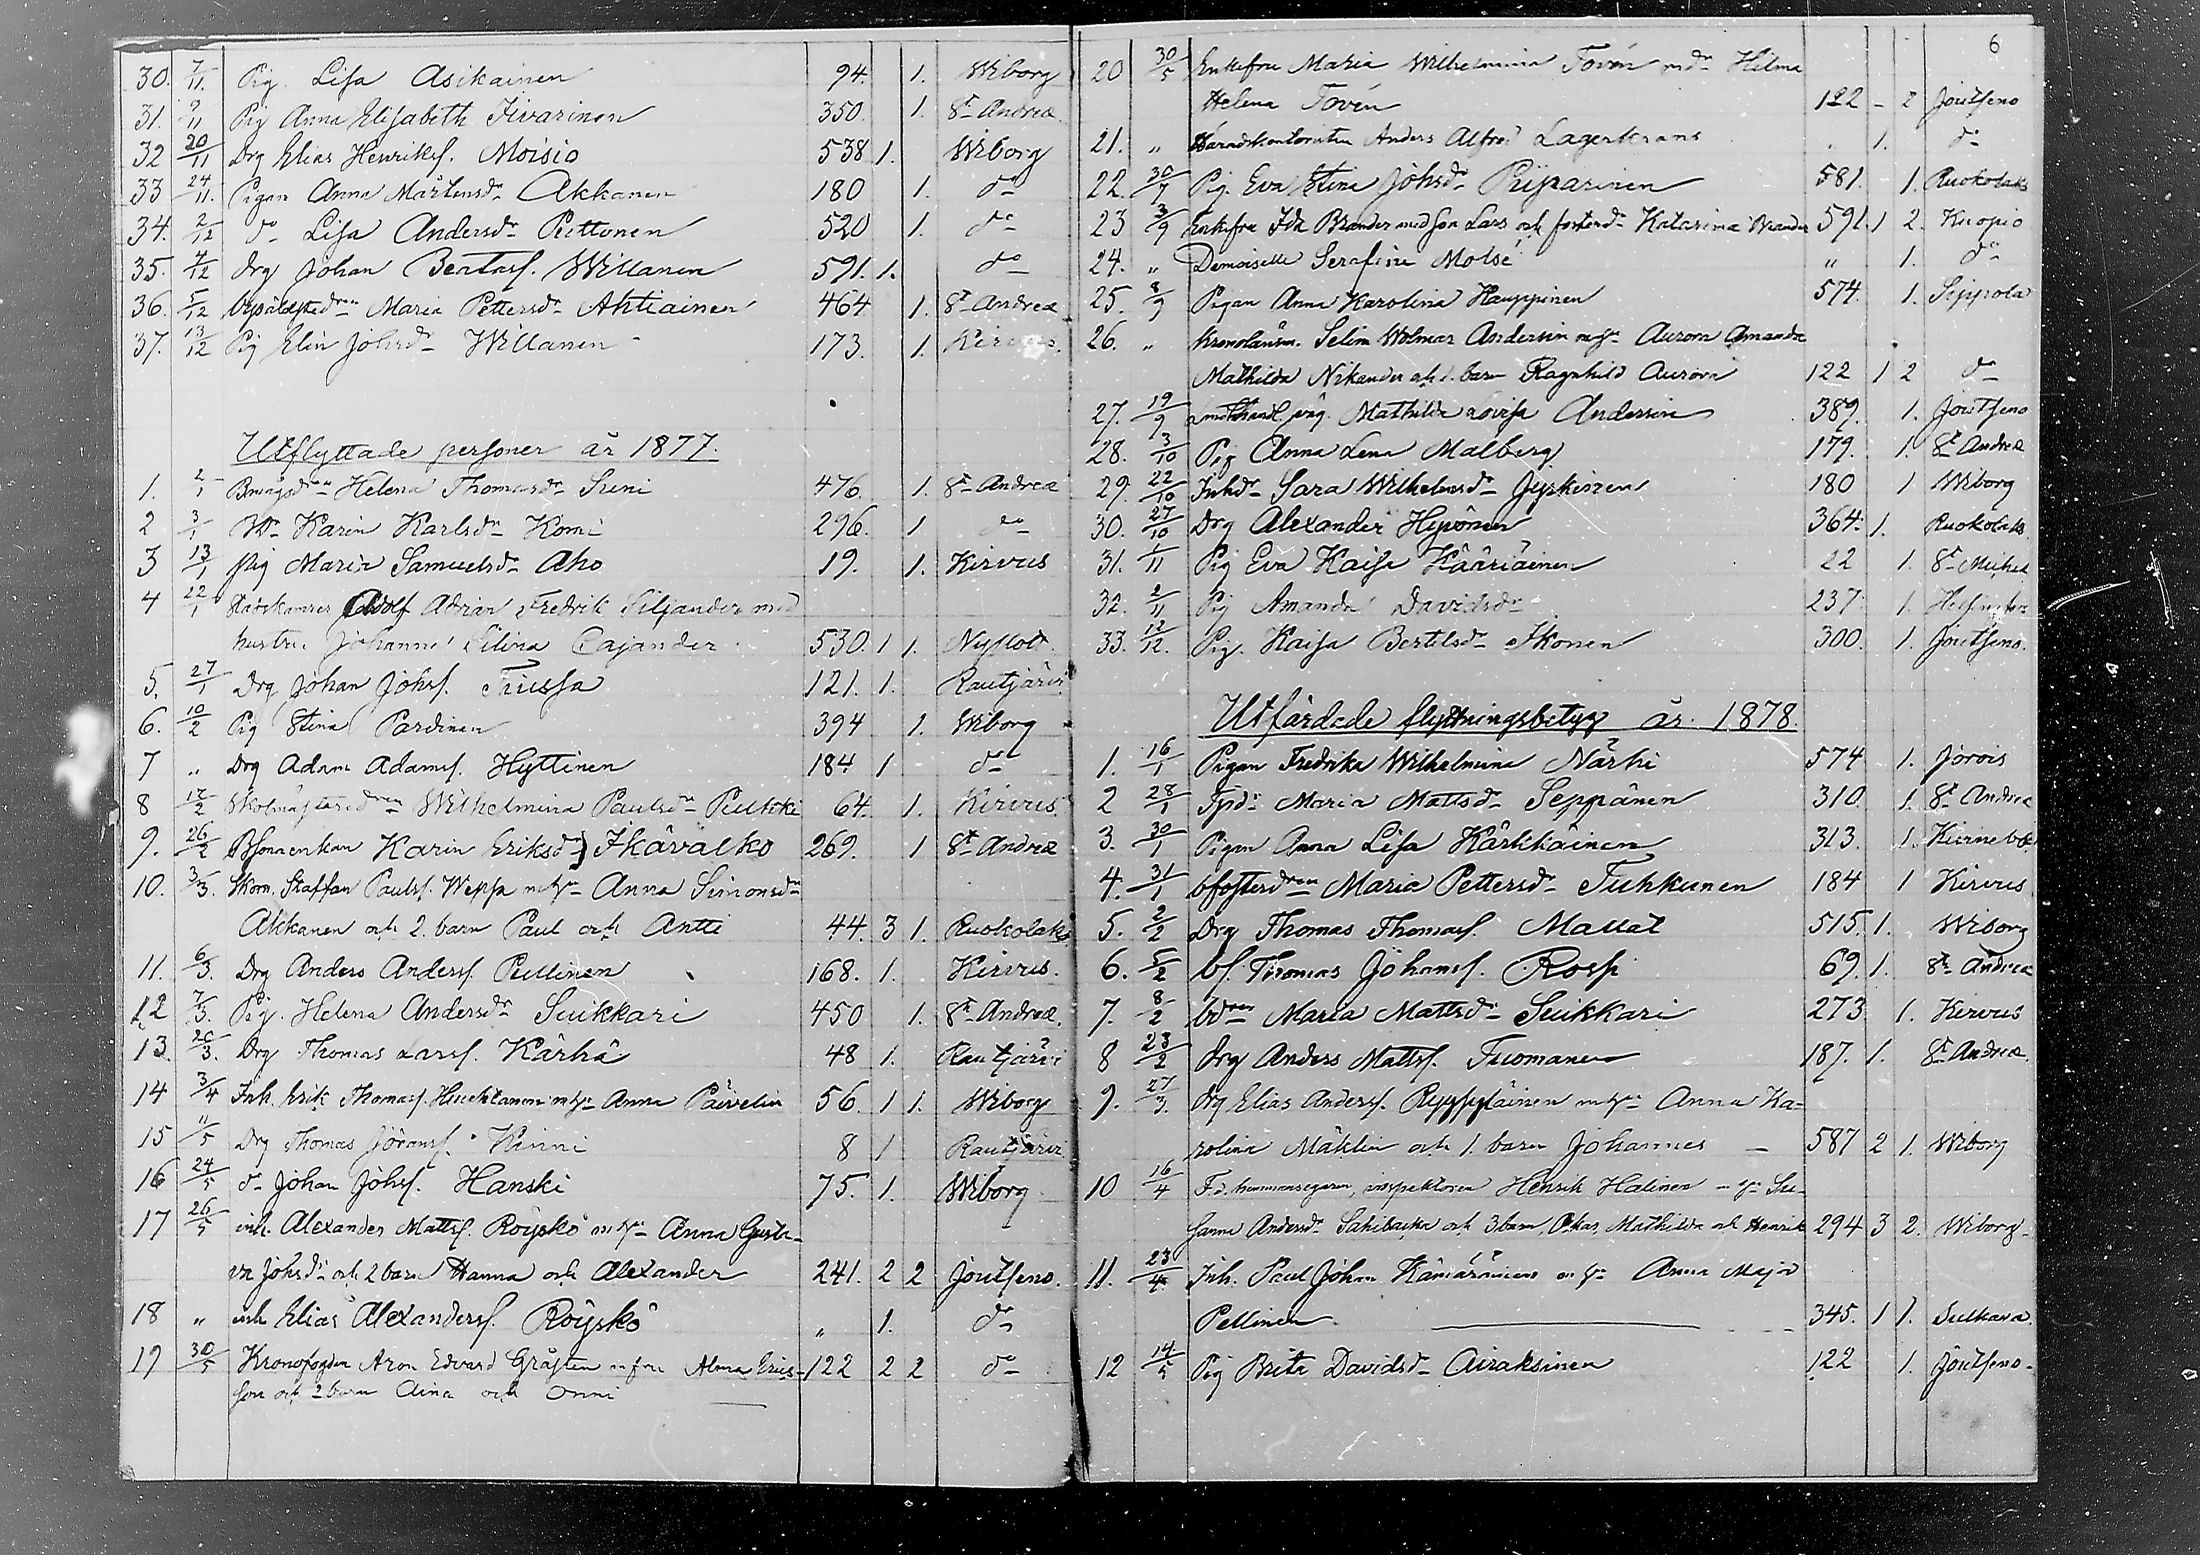 30. 7/11. Pig. Lisa Asikainen 94. 1. Wiborg
31. 9/11 Pig Anna Elisabeth Iivarinen 350. 1. St Andreæ
32 20/11 Drg Elias Henriks. Moisio 538 1. Wiborg
33 24/11. Pigan Anna Mårtensdr Akkanen 180 1. do
34. 2/12 do Lisa Andersdr Puttonen 520 1. do
35. 4/12 drg Johan Bertils. Willanen 591. 1. do
36. 5/12 Maria Pettersdr Ahtiainen 464 1. St Andreæ
37. 13/12 Pig Elin Johsdr Willanen 173. 1. Kirvus.
Utflyttade personer år 1877.
1. 2/1 Helena Thomasdr Suni 476. 1. St Andreæ
2 3/1 Karin Karlsdr Komi 296. 1 do
3 13/1 pig Maria Samuelsdr Aho 19. 1. Kirvus
4 22/1 Adolf Adrian Fredrik Siljander med
hustru Johanna Elina Cajander 530. 1 1. Nyslott
5. 27/1 Drg Johan Johs. Trussa 121. 1. Rautjärvi
6. 10/2 Pig Stina Pardinen 394 1. Wiborg
7 " Drg Adam Adams. Hyttinen 184 1 do
8 12/2 Wilhelmina Paulsdr Pulkki 64. 1. Kirvus.
9. 26/2 Karin Eriksdr Ikävalko 269. 1 St Andreæ
10. 3/3. Skom. Staffan Pauls. Weppa m hu Anna Simonsdr
Akkanen och 2. barn Paul och Antti 44. 3 1. Ruokolaks
11. 6/3. Drg Anders Anders. Pullinen 168. 1. Kirvus.
12 7/3. Pig. Helena Andersdr Suikkari 450 1. St Andreæ.
13. 20/3. Drg Thomas Lars. Kärhä 48 1. Rautjärvi
14 3/4 Inh. Erik Thomas. m hu Anna Päivelin 56. 1 1. Wiborg
15 11/5 Drg Thomas Jörans. Kinni 8 1 Rautjärvi
16 24/5 do Johan Johs. Hanski 75. 1. Wiborg
17 26/5 inh. Alexander Matts. Röyskö m hu Anna Gusta-
va Johsdr och 2 barn Hanna och Alexander 241. 2 2 Joutseno.
18 " inh Elias Alexanders. Röyskö " 1. do
19 30/5 Kronofogden Aron Edvard Gråsten m fru Alma Erics- 122 2 2 do
son och 2 barn Aina och Onni
6
20 30/5 Enkefru Maria Wilhelmina Tovén m dr Hilma
Helena Tovén 122 - 2 Joutseno
21. " Anders Alfred Lagerkrans " 1. do
22. 30/7 Pig. Eva Stina Johsdr Piiparinen 581. 1. Ruokolaks
23 3/9 Enkefru Ida Brander med son Lars och fosterdr Katarina Brander 591. 1 2. Kuopio
24. " Demoiselle Serafine Molsé " 1. do
25. 8/9 Pigan Anna Karolina Hauppinen 574. 1. Sippola
26. " Kronolänsm. Selim Wolmar Andersin m hu Aurora Amanda
Mathilda Nikander och 1. barn Ragnhild Aurora 122 1 2 do
27. 19/9 Mathilda Lovisa Andersin 389. 1. Joutseno
28. 3/10 Pig Anna Lena Malberg 179. 1. St Andreæ
29. 22/10 Inhdr Sara Wilhelmsdr Jyskinen 180 1 Wiborg
30. 27/10 Drg Alexander Hyvönen 364. 1. Ruokolaks
31. 1/11 Pig Eva Kaisa Kääriäinen 22 1. St Michel
32. 2/11 Pig Amanda Davidsdr 237. 1. Helsingfors
33. 12/12. Pig. Kaisa Bertilsdr Ikonen 300. 1. Joutseno.
Utfärdade flyttningsbetyg år 1878.
1. 16/1 Pigan Fredrika Wilhelmina Närhi 574 1. Jorois
2 28/1 Maria Mattsdr Seppänen 310. 1. St Andreæ
3. 30/1 Pigan Anna Lisa Kärkkäinen 313. 1.
4. 31/1 Maria Pettersdr Tuhkunen 184 1 Kirvus
5. 2/2 Drg Thomas Thomas. Mallat 515. 1. Wiborg
6. 5/2 bs. Thomas Johans. Rosp 69. 1. St Andreæ
7. 8/2 Maria Mattsdr Suikkari 273 1. Kirvus
8 23/2 drg Anders Matts. Tuomanen 187. 1. St Andreæ.
9. 27/3. drg Elias Anders. m hu Anna Ka-
rolina Mäklin och 1. barn Johannes — 587 2 1. Wiborg
10 16/4 F.d. hemmansegaren, inspektoren Henrik Halinen m hu Su-
sanna Andersdr och 3 barn, Oskar, Mathilda och Henrik 294 3 2. Wiborg
11. 23/4. Inh. Paul Johan Kämäräinen m hu Anna Maja
Pellinen 345. 1 1. Sulkava.
12 14/5 Pig Brita Davidsdr Airaksinen 122 1. Joutseno.